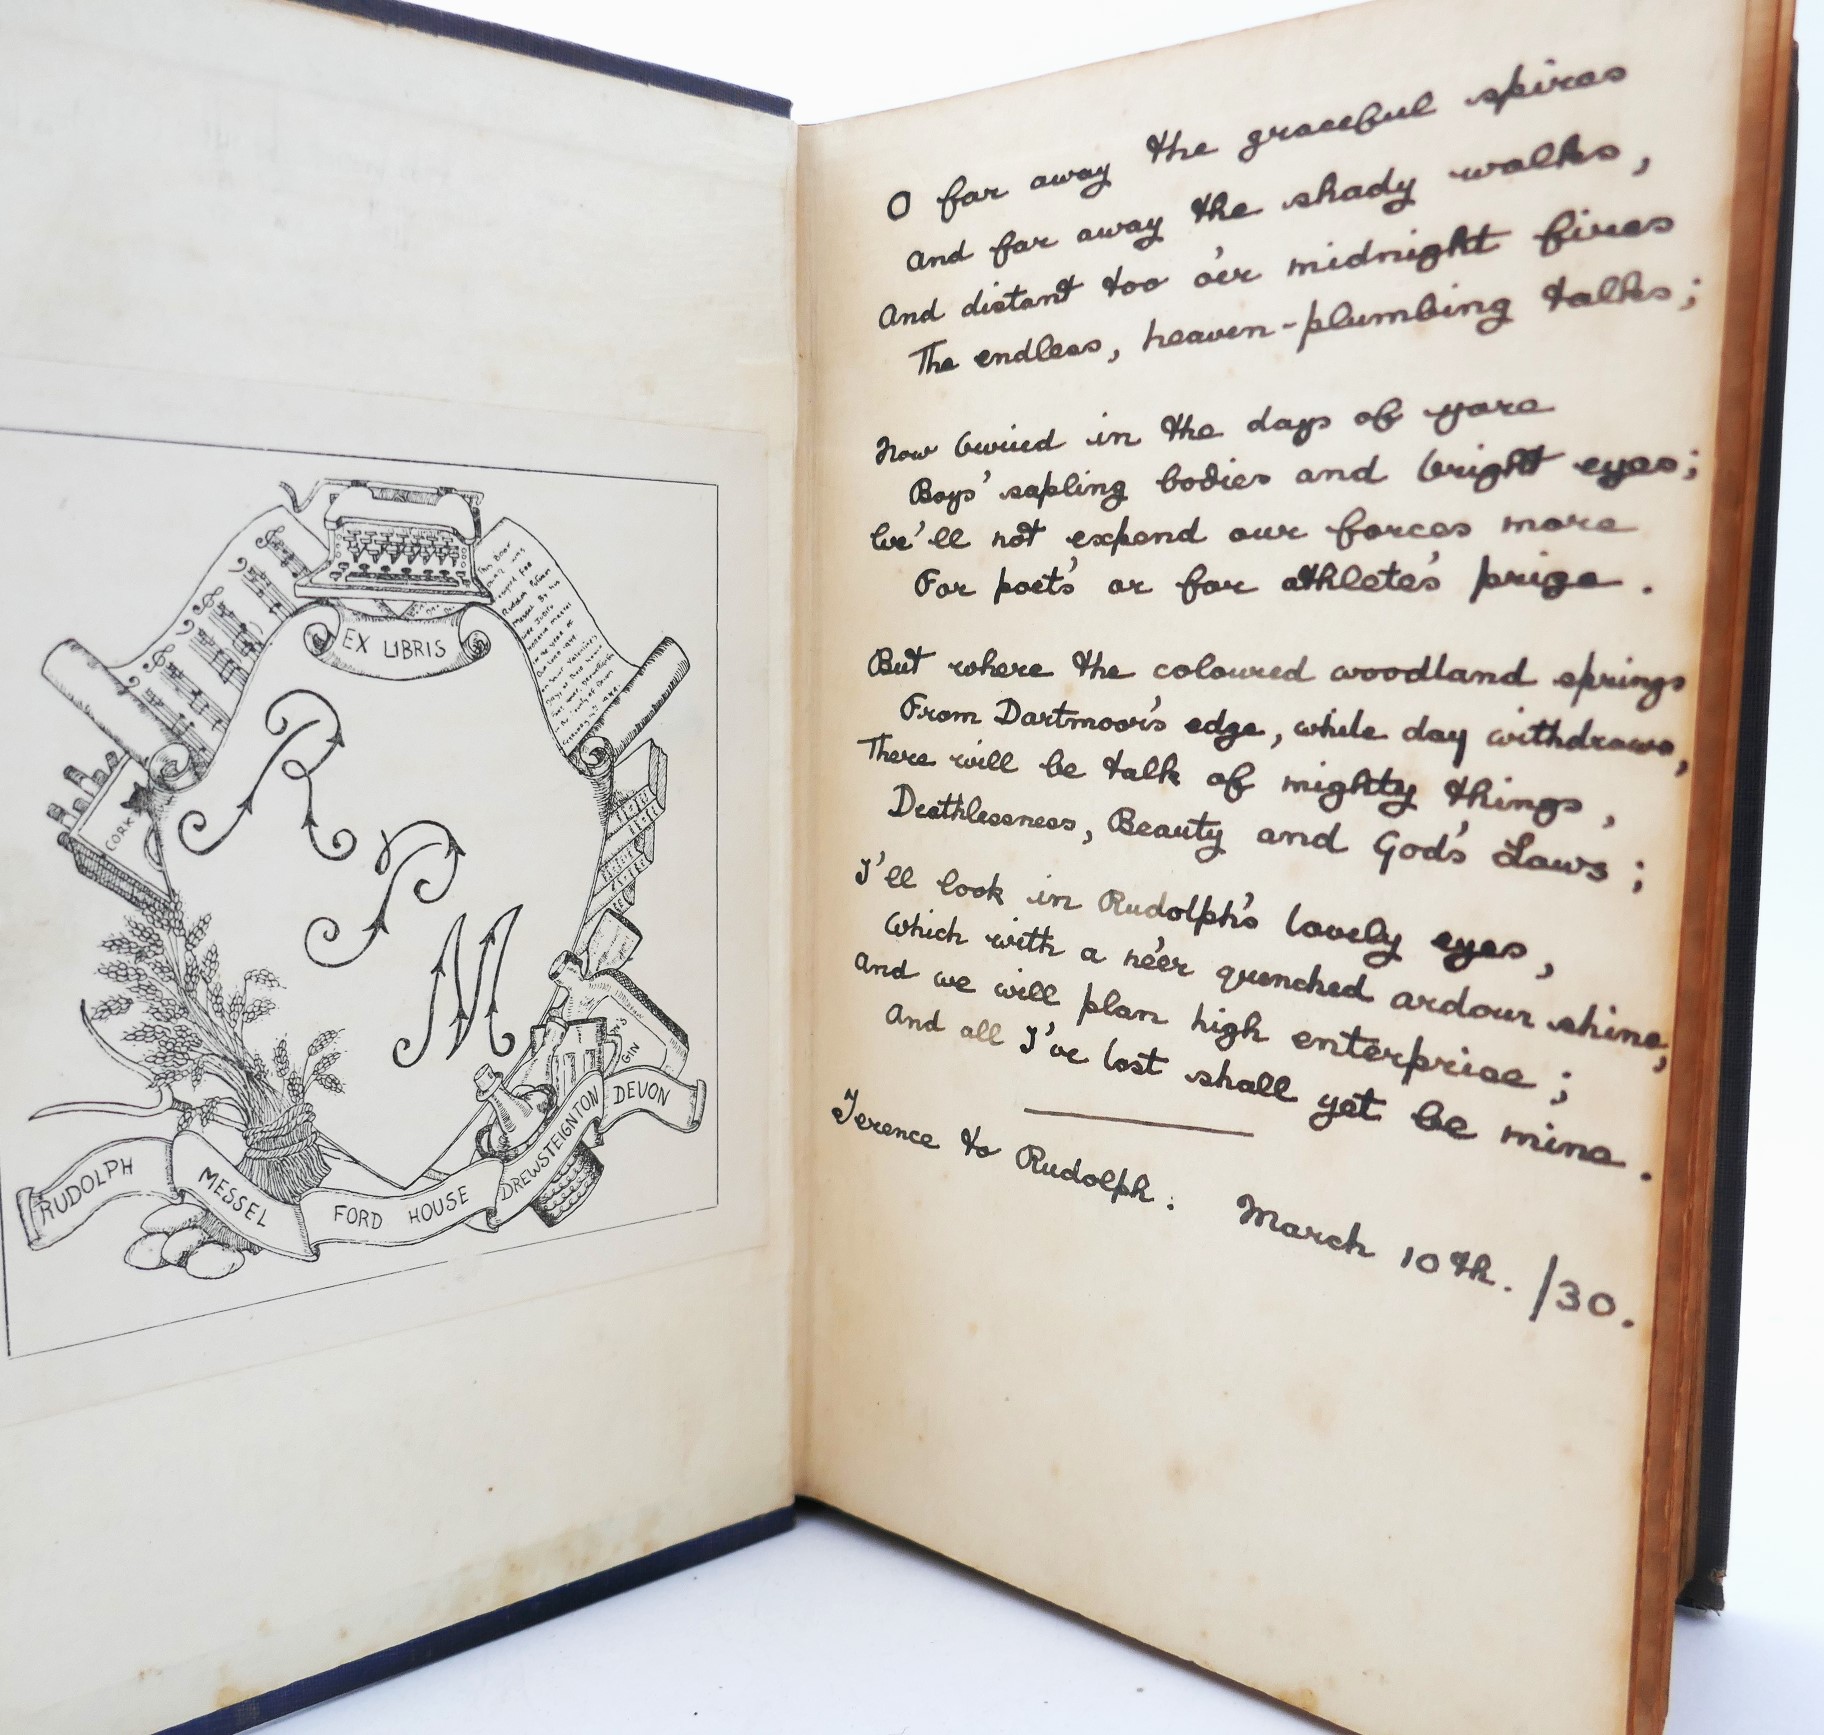 EX LIBRIS
CORK
R
S
M
GIN
RUDOLPH MESSEL FORD HOUSE DREWSTEIGNTON DEVON
O far away the graceful spires
And far away the shady walks,
And distant too o'er midnight fires
The endless, heaven-plumbing talks;
Now buried in the days of yore
Boys' sapling bodies and bright eyes;
We'll not expend our forces more
For poet's or for athlete's prize.
But where the coloured woodland springs
From Dartmoor's edge, while day withdraws,
There will be talk of mighty things,
Deathlessness, Beauty and God's Laws;
I'll look in Rudolph's lovely eyes,
Which with a ne'er quenched ardour shine,
And we will plan high enterprise;
And all I've lost shall yet be mine.
Terence to Rudolph. March 10th. /30.